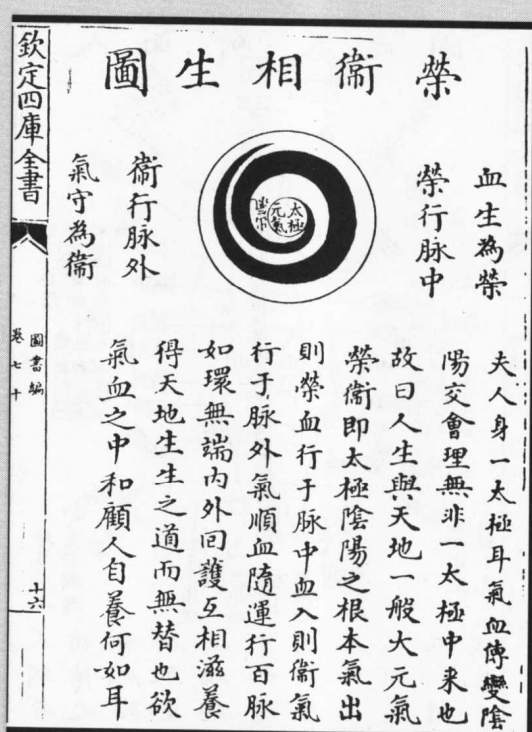 榮衞相生圖
血生為榮
榮行脉中
太極
元氣
衞行脉外
氣守為衞
夫人身一太極耳氣血傳變陰
陽交會理無非一太極中来也
故曰人生與天地一般大元氣
榮衞即太極陰陽之根本氣出
則榮血行于脉中血入則衞氣
行于脉外氣順血隨運行百脉
如環無端内外回護互相滋養
得天地生生之道而無替也欲
氣血之中和顧人自養何如耳
欽定四庫全書
圖書編
卷七十
十六